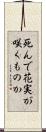 死んで花実が
咲くものか